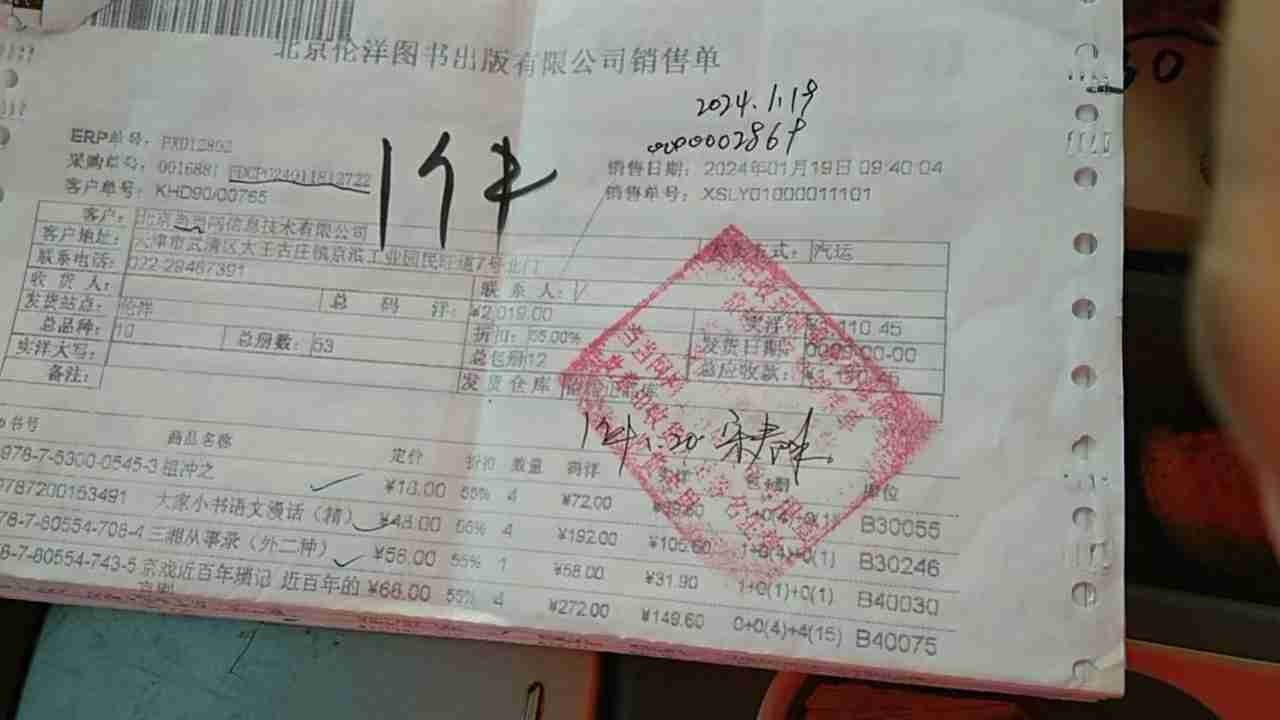 北京伦洋图书出版有限公司销售单
2024.1.19
0000002869
ERP单号: PX012802
1件
采购单号: 0016881 PDCP024011813722
销售日期: 2024年01月19日 09:40:04
客户单号: KHD90/00765
销售单号: XSLY01000011101
客户: 北京当当网信息技术有限公司
汽运
客户地址: 天津市武清区大王古庄镇京滨工业园民旺道7号北门
联系电话: 022-29467391
联系人:
收货人: 总码洋: ¥2,019.00
发货站点: 伦洋 折扣: 55.00% 实洋: 110.45
总品种: 10 总册数: 53 总包册 12 发货日期: 0000-00-00
实洋大写: 发货仓库 总应收款:
备注:
书号 商品名称 定价 折扣 数量 码洋 实洋
124.1.20
978-7-5300-0545-3 祖冲之 ¥18.00 55% 4 ¥72.00 B30055
9787200153491 大家小书语文漫话(精) ¥48.00 55% 4 ¥192.00 ¥105.60 1+0(4)+0(1) B30246
78-7-80554-708-4 三湘从事录(外二种) ¥58.00 55% 1 ¥58.00 ¥31.90 1+0(1)+0(1) B40030
8-7-80554-743-5 京戏近百年琐记 近百年的 ¥68.00 55% 4 ¥272.00 ¥149.60 0+0(4)+4(15) B40075
京剧